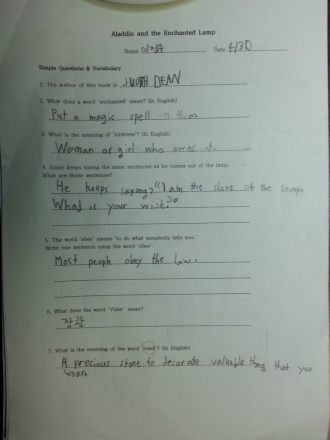 Aladdin and the Enchanted Lamp
Name Date 4/30
Simple Questions & Vocabulary
1. The author of this book is JUDITH DEAN
2. What does a word 'enchanted' mean? (In English)
Put a magic spell on them
3. What is the meaning of 'mistress'? (In English)
Woman or girl who owns it.
4. Genie keeps saying the same sentences as he comes out of the lamp.
What are those sentences?
He keeps saying "I am the slave of the lamp.
What is your wish?"
5. The word 'obey' means 'to do what somebody tells you.'
Write one sentence using the word 'obey'.
Most people obey the law.
6. What does the word 'Vizier' mean?
장관
7. What is the meaning of the word 'jewel'? (In English)
A precious stone to decorate valuable thing that you